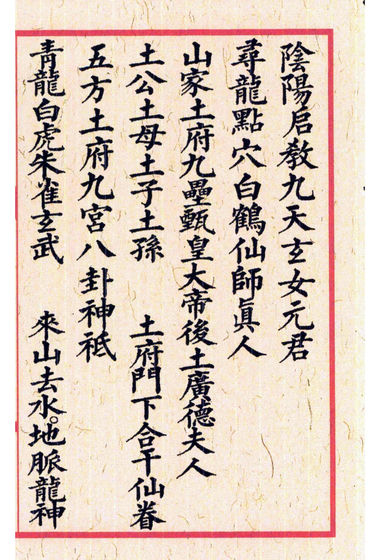 陰陽啟教九天玄女元君
尋龍點穴白鶴仙師眞人
山家土府九壘甄皇大帝後土廣德夫人
土公土母土子土孫　土府門下合干仙眷
五方土府九宮八卦神祇
青龍白虎朱雀玄武　來山去水地脈龍神